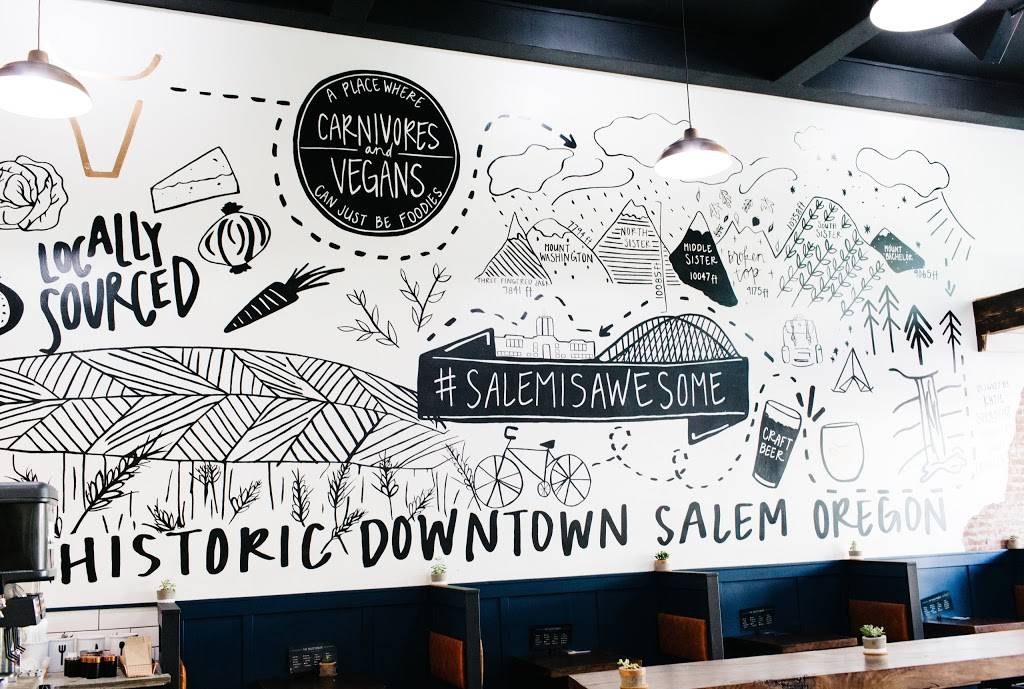 A PLACE WHERE
CARNIVORES
and
VEGANS
CAN JUST BE FOODIES
LOCALLY
SOURCED
THREE FINGERED JACK
7841 ft
MOUNT
WASHINGTON
7794 ft
NORTH
SISTER
10085 ft
MIDDLE
SISTER
10047 ft
broken
top
9175 ft
SOUTH
SISTER
10358 ft
MOUNT
BACHELOR
9065 ft
#SALEMISAWESOME
CRAFT
BEER
HISTORIC DOWNTOWN SALEM OREGON